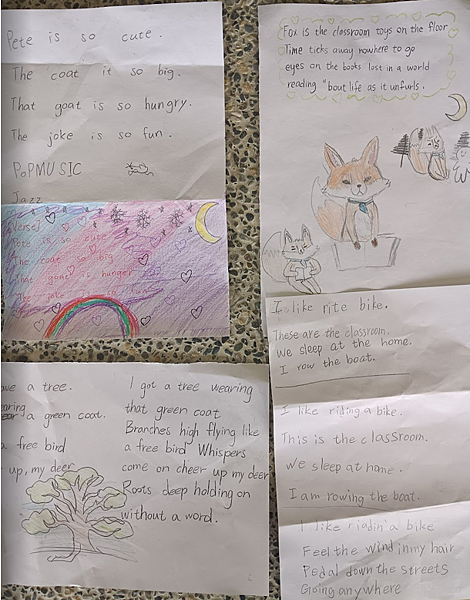 Pete is so cute.
The coat it so big.
That goat is so hungry.
The joke is so fun.
POPMUSIC
Jazz
Verse]
Pete is so cute
The coat so big
That goat is hunger
The jok
Fox is the classroom toys on the floor
Time ticks away nowhere to go
eyes on the books lost in a world
reading "bout life as it unfurls.
I like rite bike.
These are the classroom.
We sleep at the home.
I row the boat.
I like riding a bike.
This is the classroom.
We sleep at home.
I am rowing the boat.
I like ridin' a bike
Feel the wind in my hair
Pedal down the streets
Going anywhere
a tree.
a green coat.
a free bird
up, my deer
I got a tree wearing
that green coat
Branches high flying like
a free bird Whispers
come on cheer up my dear
Roots deep holding on
without a word.